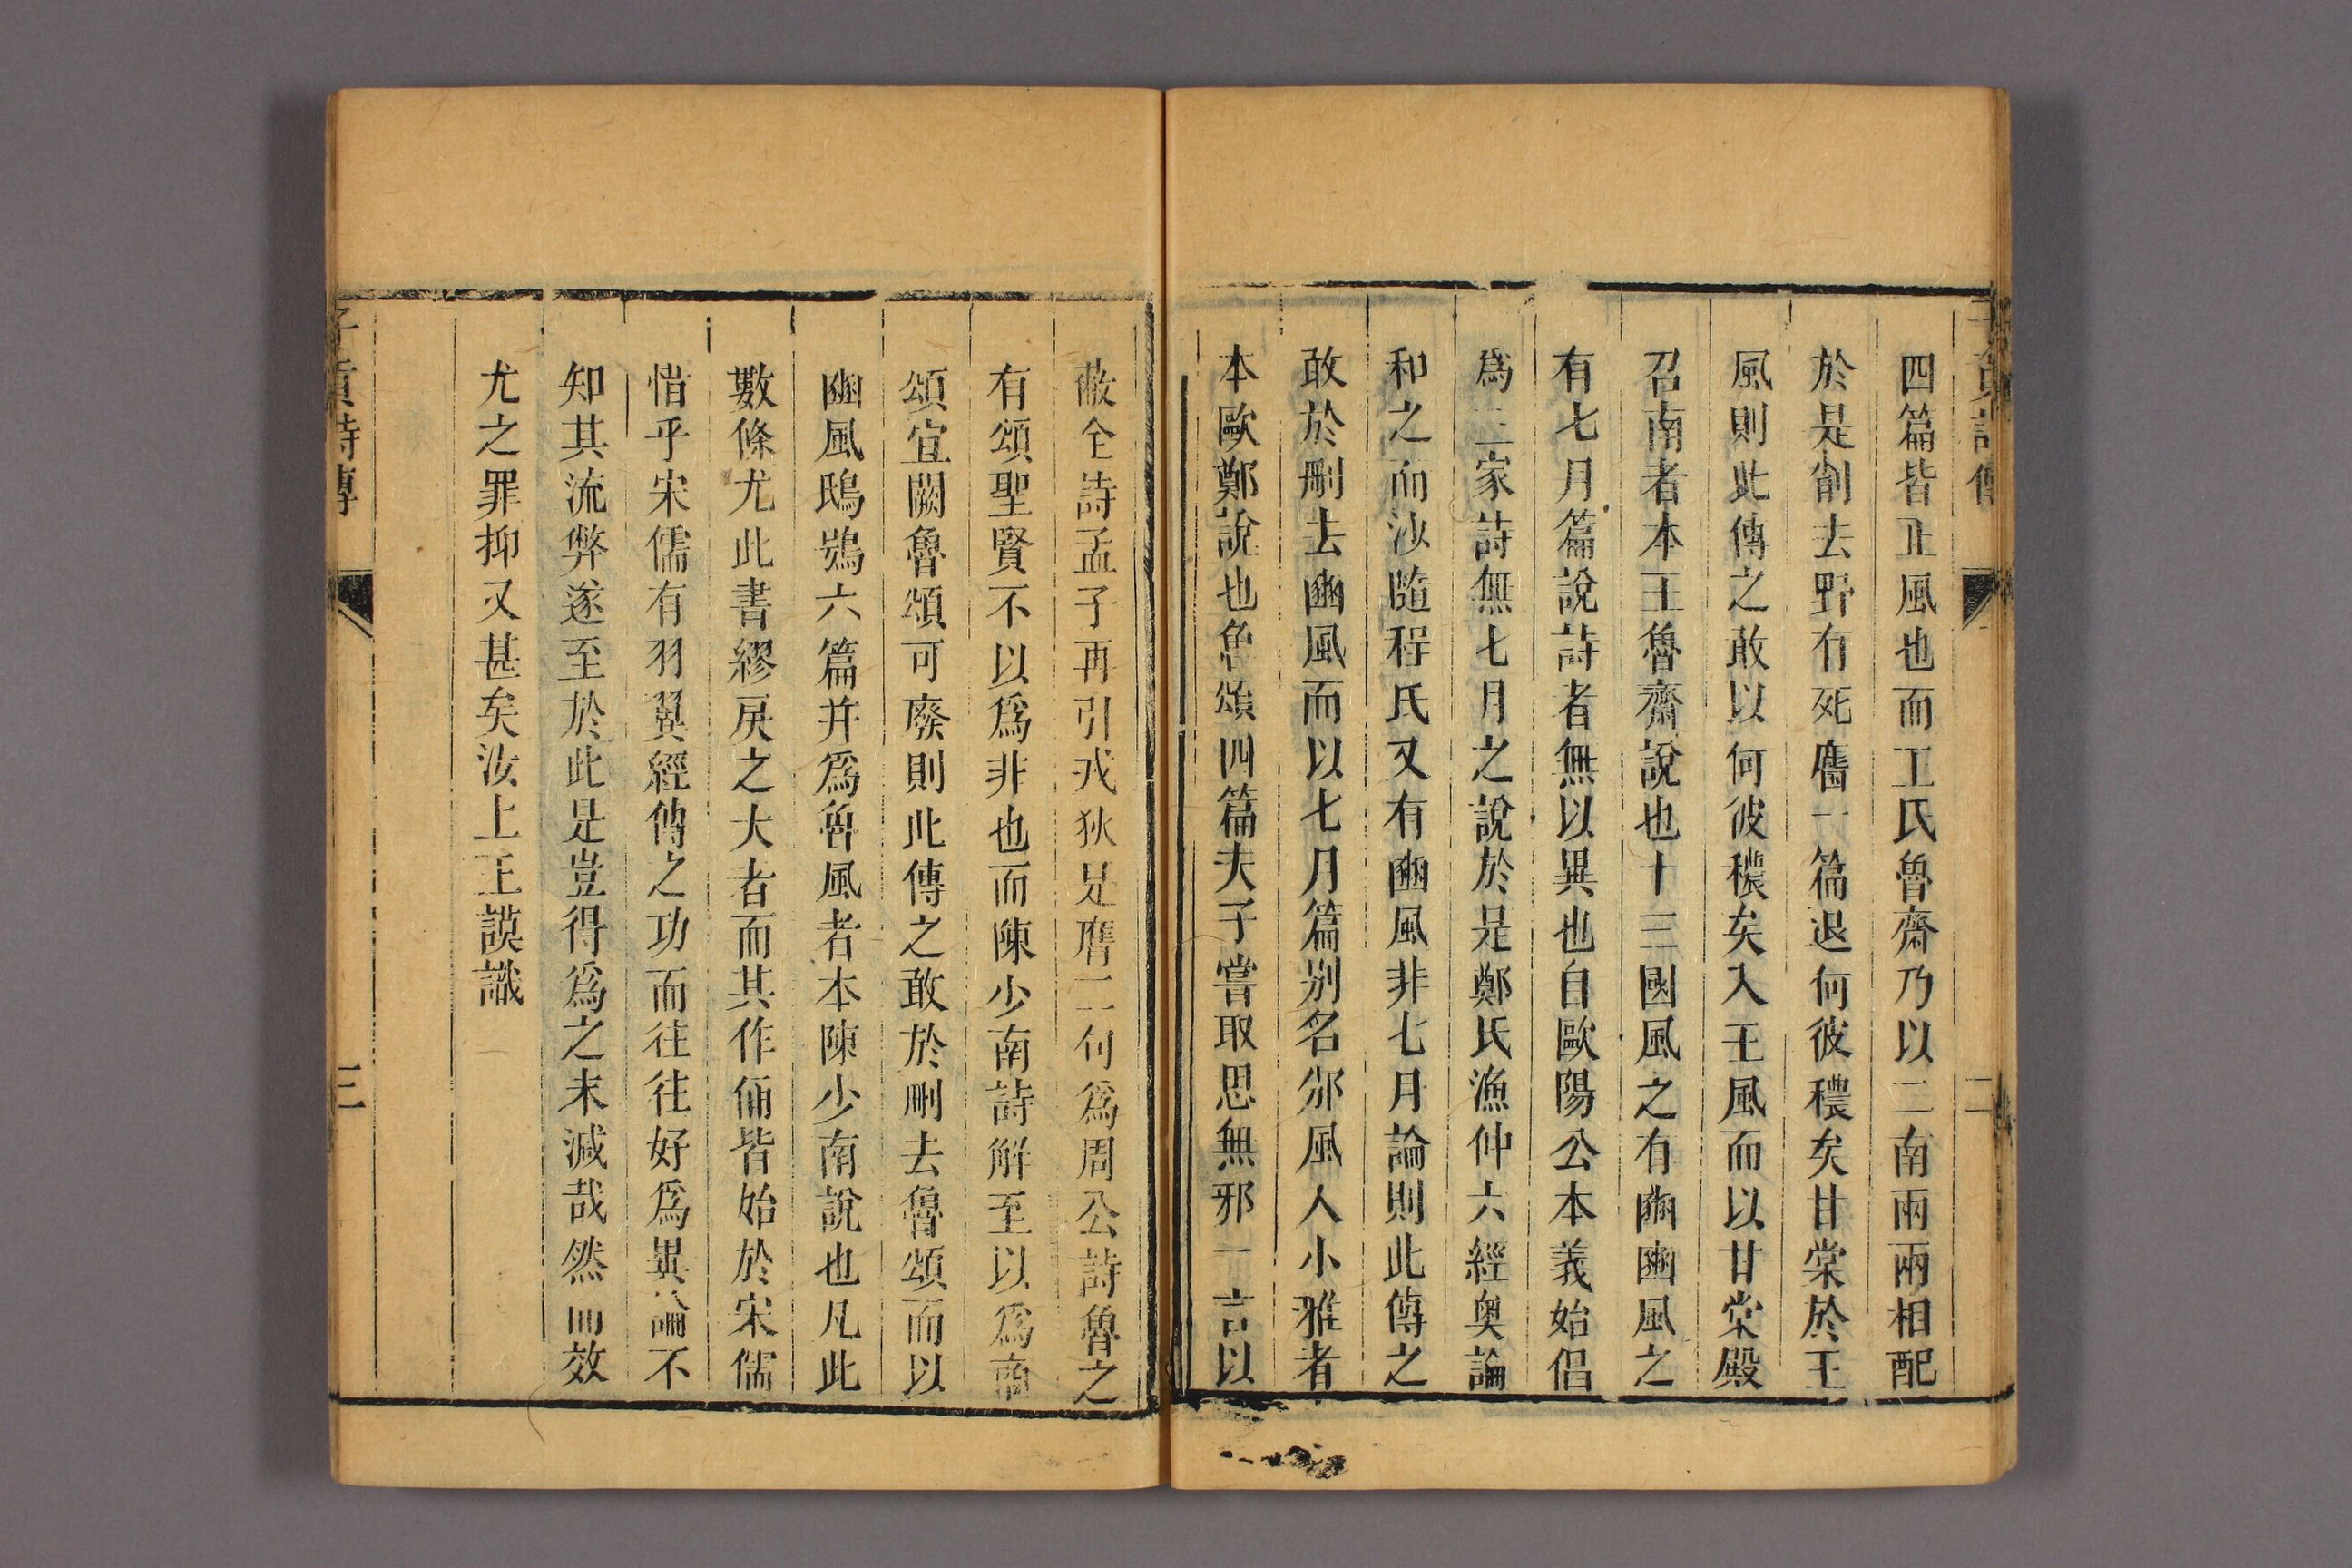 子貢詩傳
二
四篇皆正風也而王氏魯齋乃以二南兩兩相配
於是削去野有死麕一篇退何彼穠矣甘棠於王
風則此傳之敢以何彼穠矣入王風而以甘棠殿
召南者本王魯齋說也十三國風之有豳豳風之
有七月篇說詩者無以異也自歐陽公本義始倡
爲三家詩無七月之說於是鄭氏漁仲六經奧論
和之而沙隨程氏又有豳風非七月論則此傳之
敢於刪去豳風而以七月篇别名邠風人小雅者
本歐鄭說也魯頌四篇夫子嘗取思無邪一言以
蔽全詩孟子再引戎狄是膺二句爲周公詩魯之
有頌聖賢不以爲非也而陳少南詩解至以爲商
頌宜闕魯頌可廢則此傳之敢於刪去魯頌而以
豳風鴟鴞六篇并爲魯風者本陳少南說也凡此
數條尤此書繆戾之大者而其作俑皆始於宋儒
惜乎宋儒有羽翼經傳之功而往往好爲異論不
知其流弊遂至於此是豈得爲之末減哉然而效
尤之罪抑又甚矣汝上王謨識
子貢詩傳
三